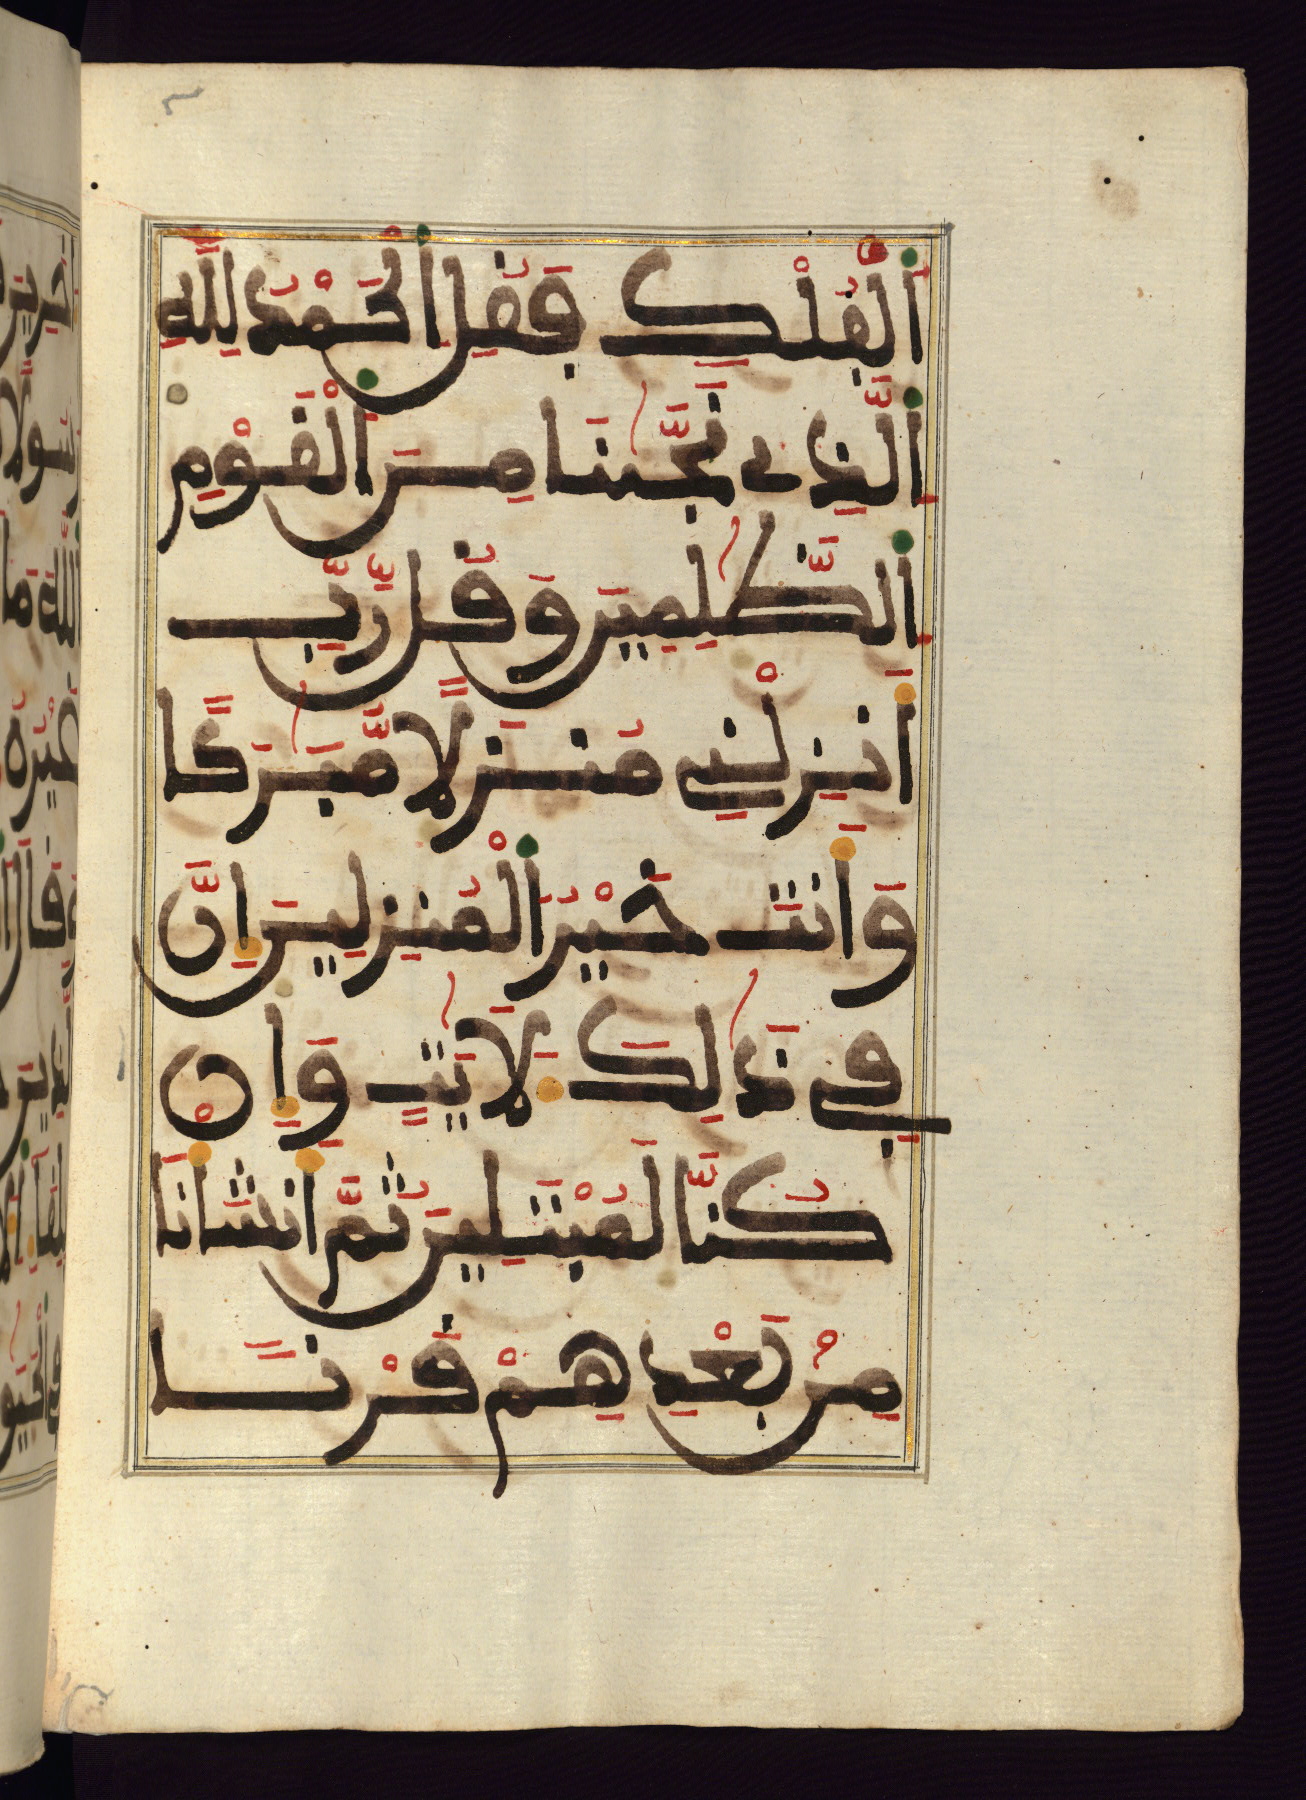 اَ۬لْفُلْكِ فَقُلِ اِ۬لْحَمْدُ لِلهِ
اِ۬لذِے نَجَّيٰنَا مِنَ اَ۬لْقَوْمِ
اِ۬لظَّٰلِمِينَ وَقُل رَّبِّ
أَنزِلْنِے مُنزَلًا مُّبَٰرَكًا
وَأَنتَ خَيْرُ اُ۬لْمُنزِلِينَ إِنَّ
فِے ذَٰلِكَ لَأٓيَٰتٍ وَإِن
كُنَّا لَمُبْتَلِينَ ثُمَّ أَنشَأْنَا
مِنۢ بَعْدِهِمْ قَرْنًا